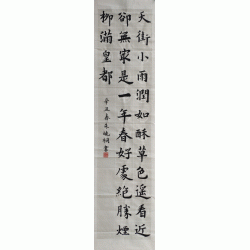 天街小雨潤如酥草色遙看近
卻無㝡是一年春好處絕勝煙
柳滿皇都
辛丑春